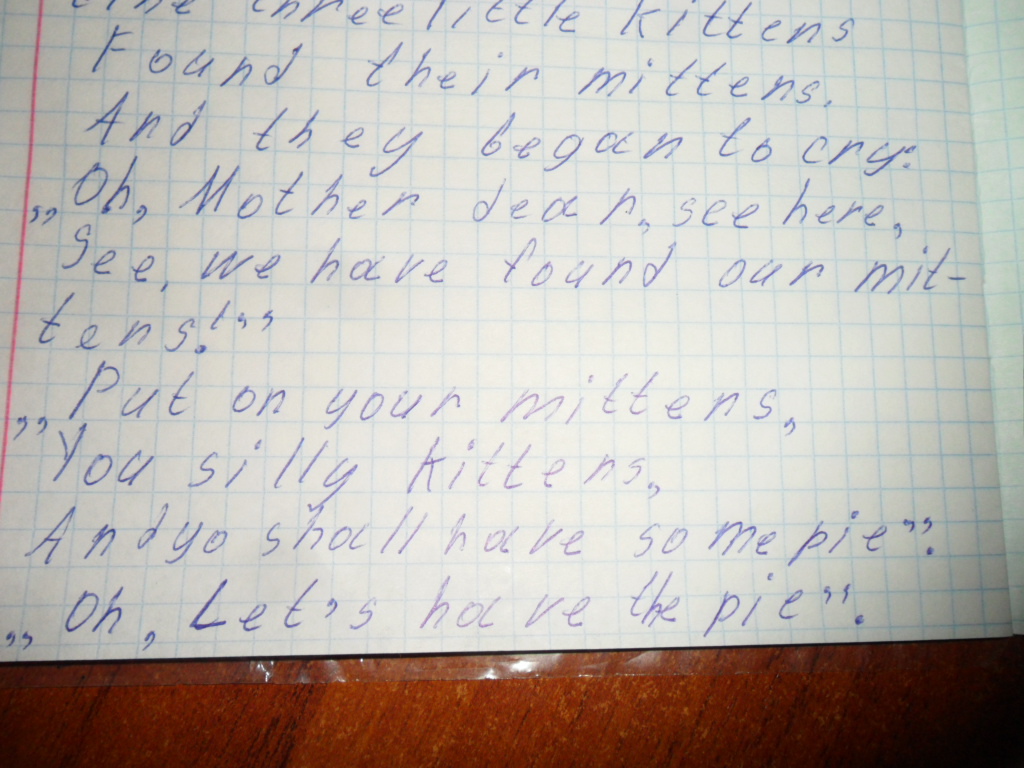 The three little kittens
Found their mittens.
And they began to cry:
„Oh, Mother dear, see here,
See, we have found our mit-
tens!”
„Put on your mittens,
You silly kittens,
And yo shall have some pie”.
„Oh, Let's have the pie”.